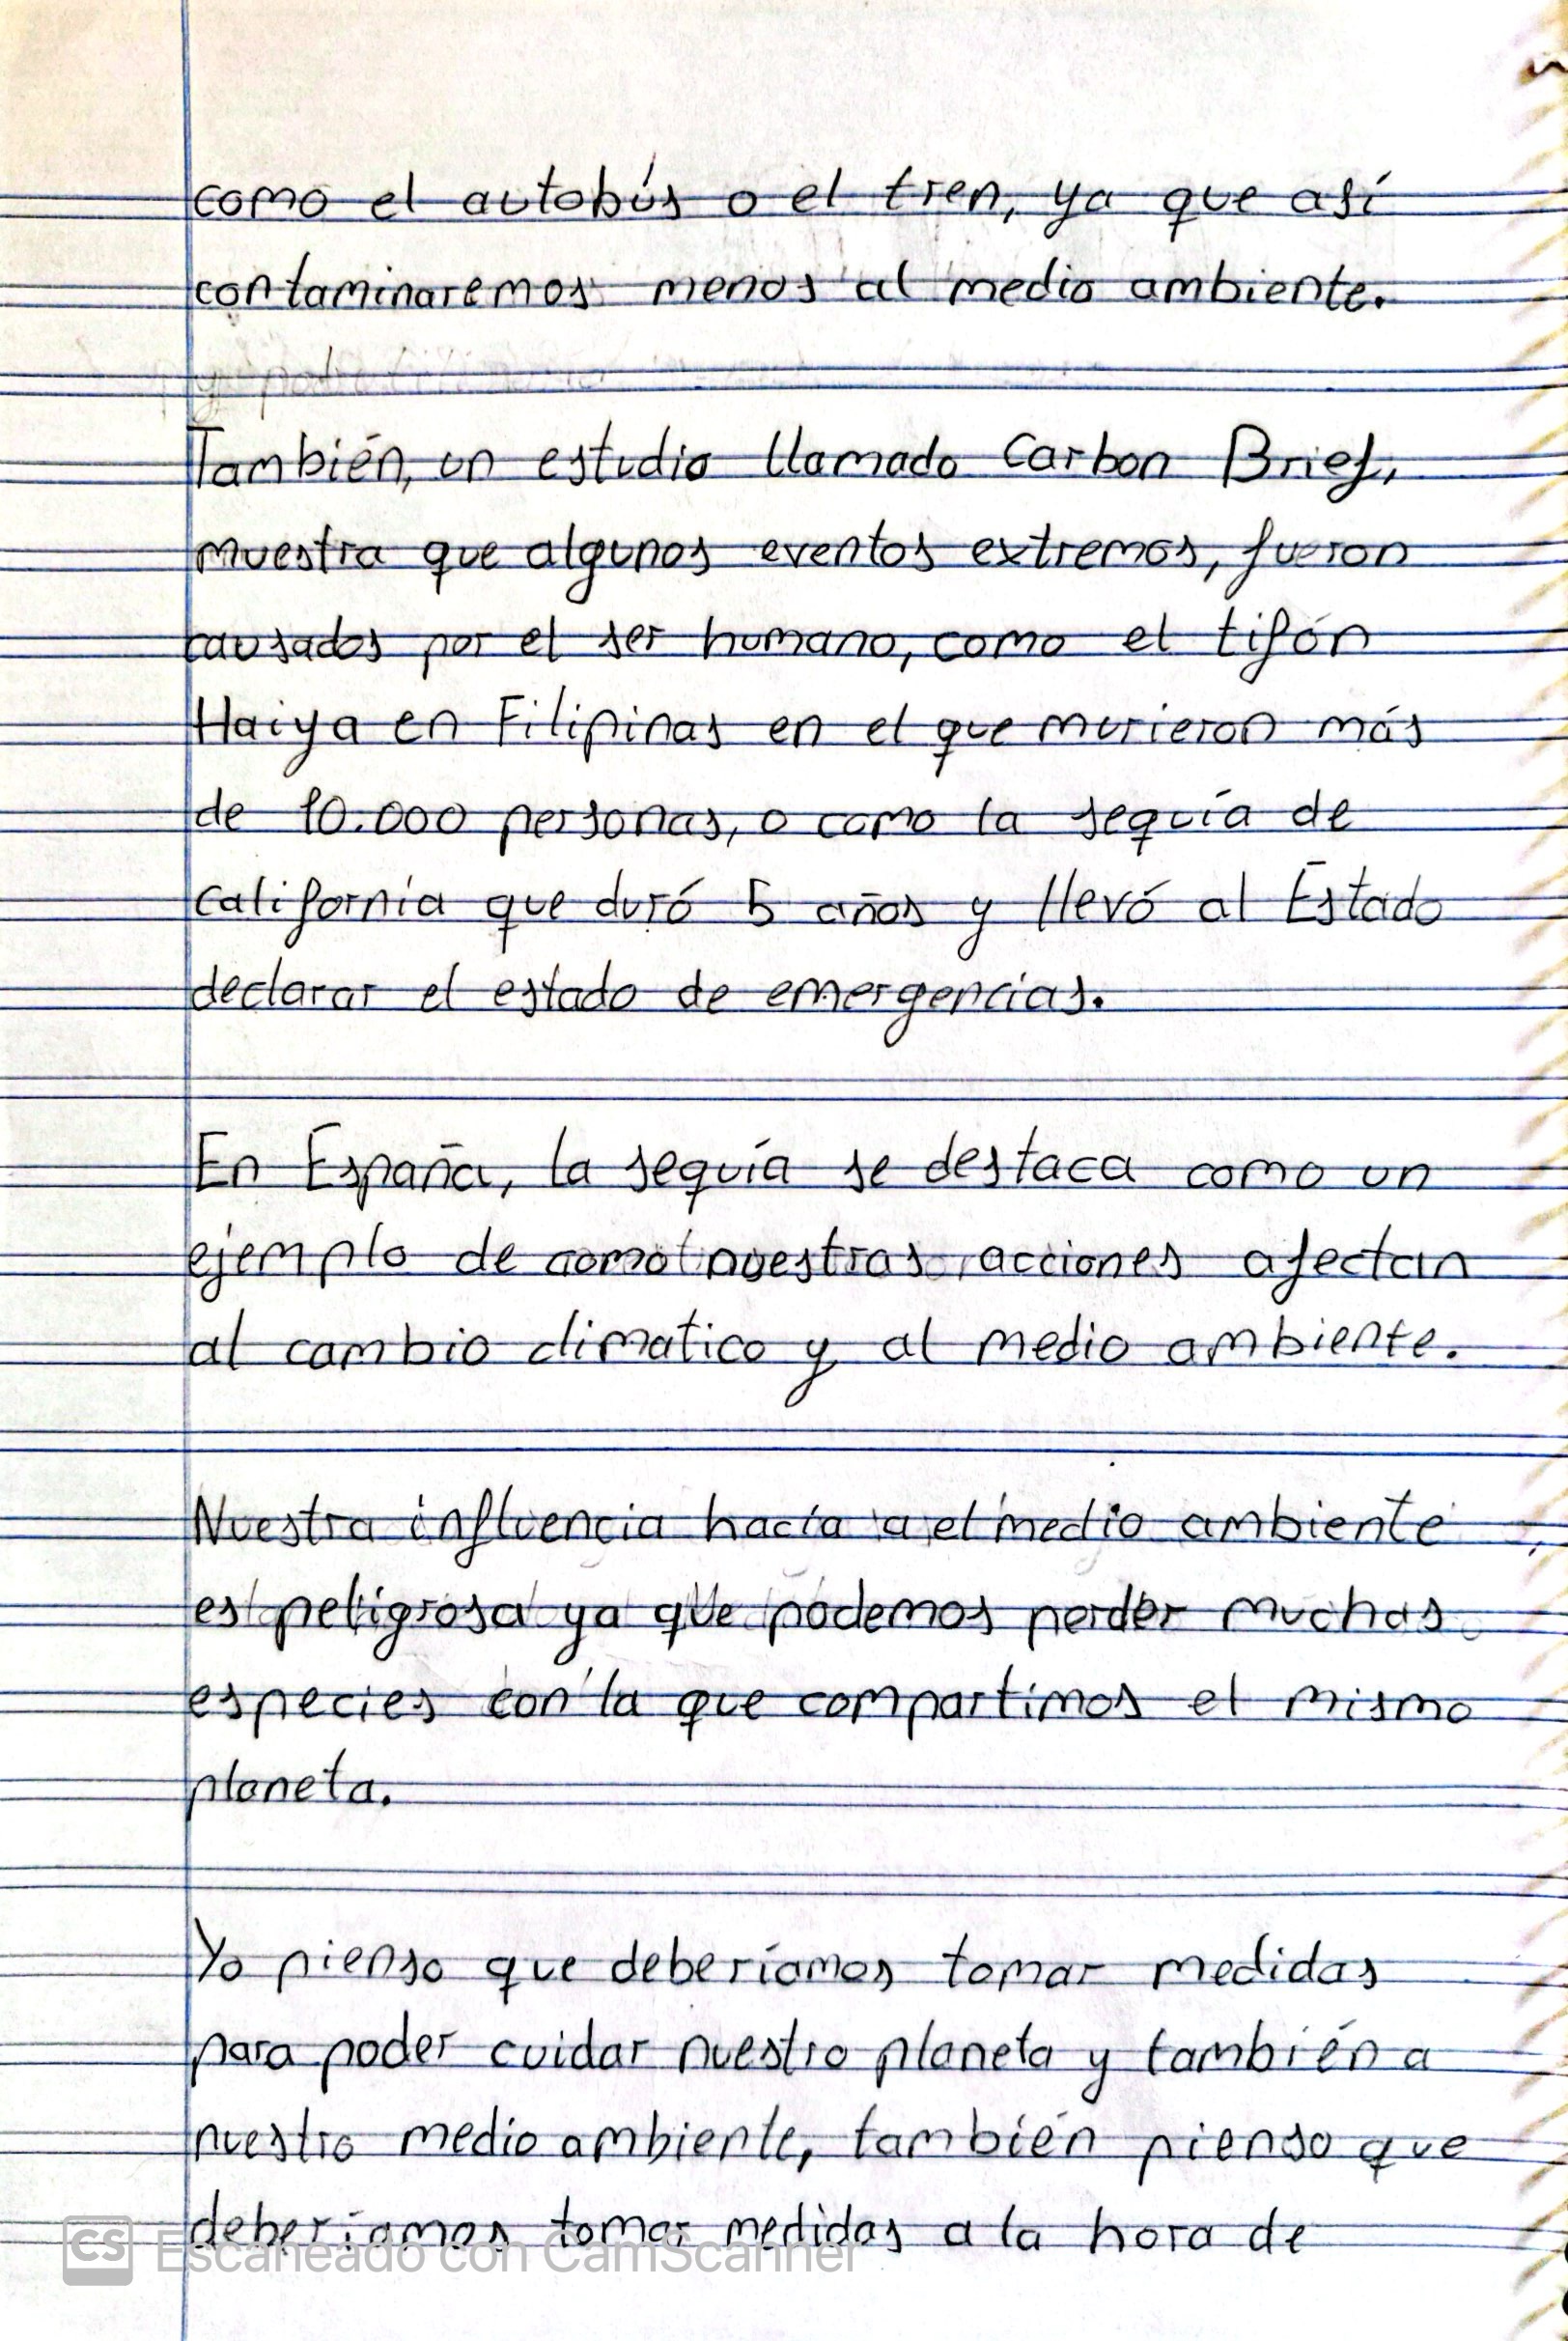 como el autobús o el tren, ya que así
contaminaremos menos al medio ambiente.
También, un estudio llamado Carbon Brief,
muestra que algunos eventos extremos, fueron
causados por el ser humano, como el tifón
Haiya en Filipinas en el que murieron más
de 10.000 personas, o como la sequía de
california que duró 5 años y llevó al Estado
declarar el estado de emergencias.
En España, la sequía se destaca como un
ejemplo de como nuestras acciones afectan
al cambio climatico y al medio ambiente.
Nuestra influencia hacía a el medio ambiente
es peligrosa ya que podemos perder muchas
especies con la que compartimos el mismo
planeta.
Yo pienso que deberíamos tomar medidas
para poder cuidar nuestro planeta y también a
nuestro medio ambiente, también pienso que
deberíamos tomar medidas a la hora de
CS Escaneado con CamScanner